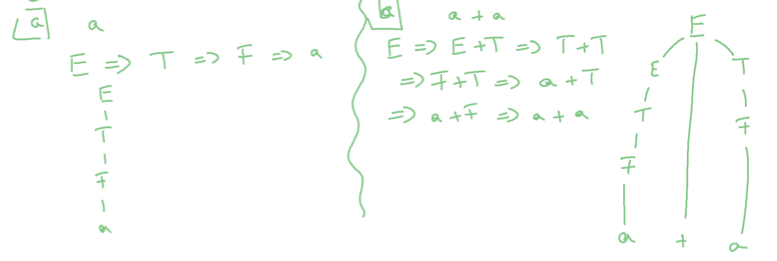 a a
E => T => F => a
E
T
F
a
a a + a
E => E+T => T+T
=> F+T => a+T
=> a+F => a+a
E
E T
T F
F
a + a